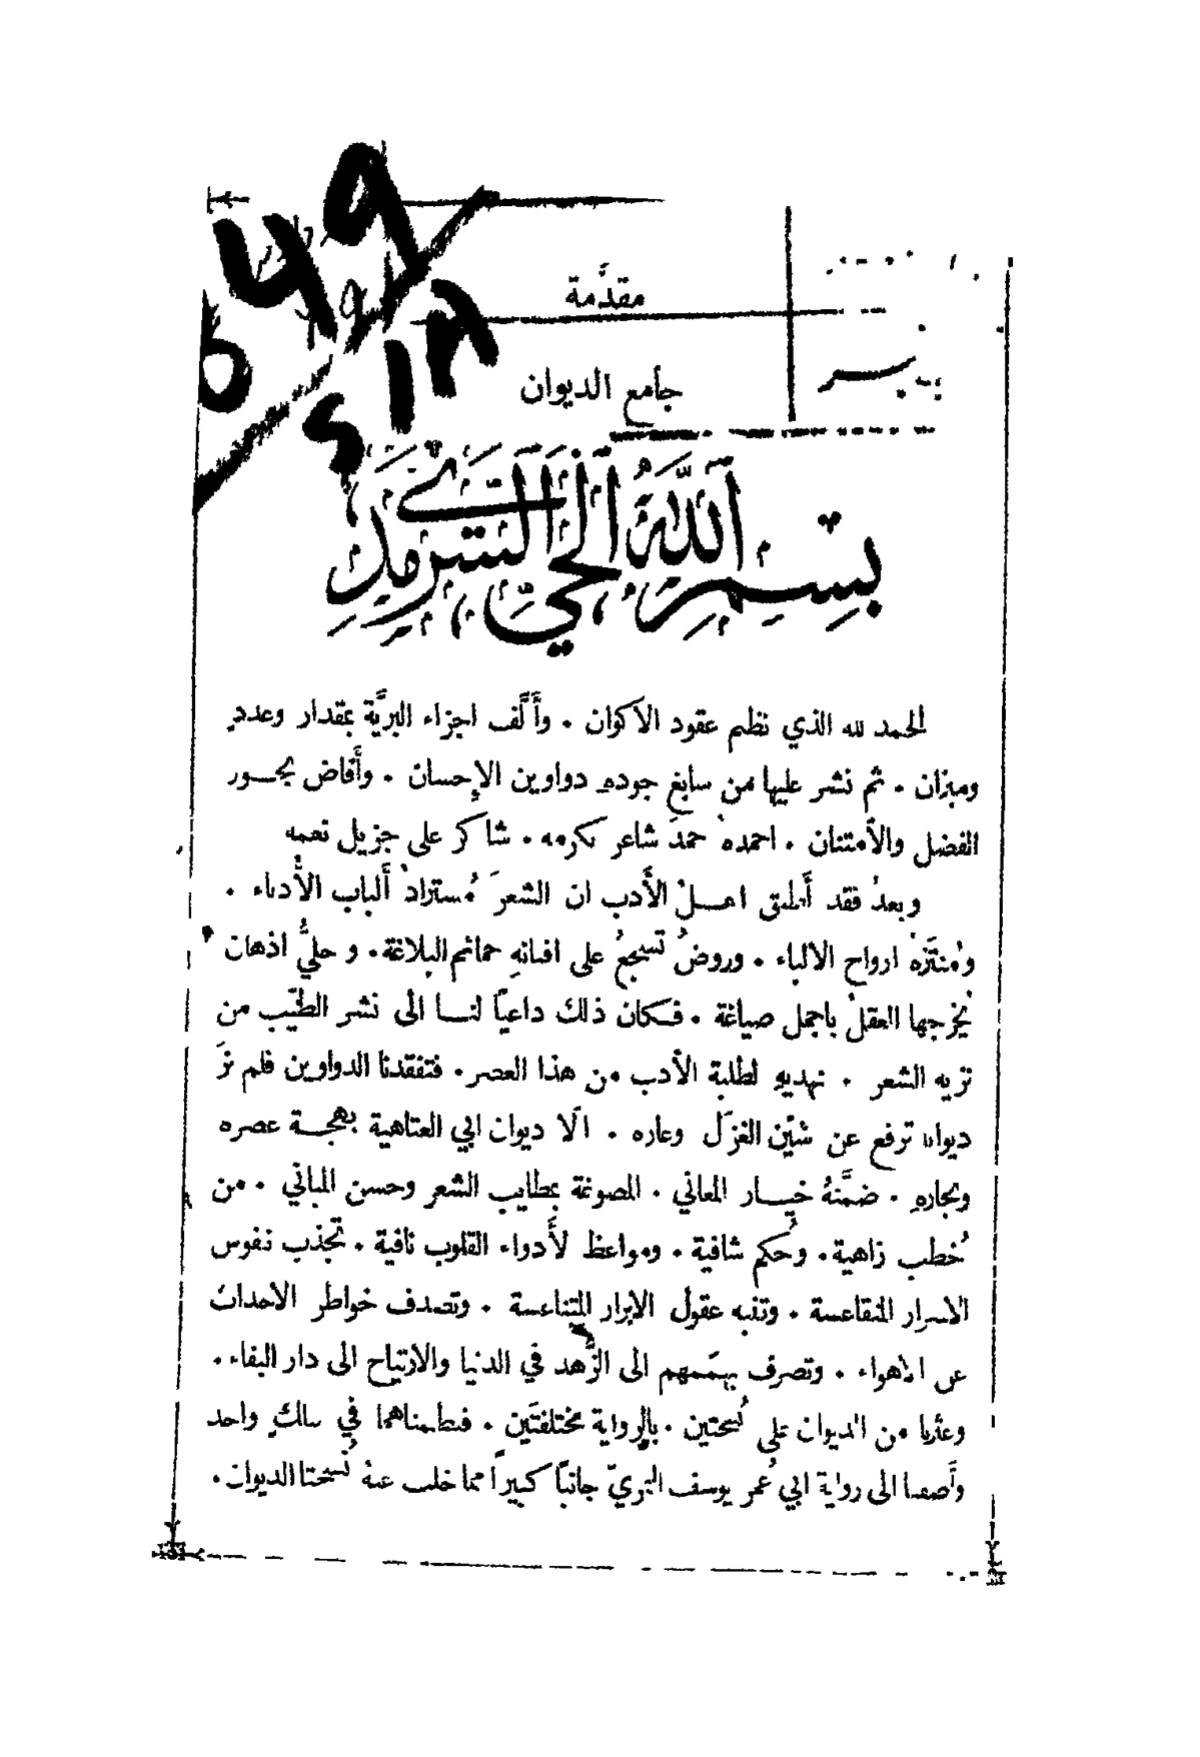 مقدَّمة
جامع الديوان
بِسْمِ اللّٰهِ الحَيِّ السَّرْمَدِيّ
الحمد لله الذي نظم عقود الاكوان . وأَلَّف اجزاء البريَّة بمقدار وعددٍ
وميزان . ثم نشر عليها من سابغ جودهِ دواوين الإِحسان . وأَفاض بحـور
الفضل والاَمتنان . احمدهُ حمدَ شاعر بكرمه . شاكر على جزيل نعمه
وبعدُ فقد أَطبق اهـلُ الأَدب ان الشعرَ مُسترادُ أَلباب الأُدباء .
ومُنتَزهُ ارواح الالباء . وروضُ تسجعُ على افنانهِ حمائم البلاغة . وحليُّ اذهان
يُخرجها العقلُ باجمل صياغة . فـكان ذلك داعيًا لنـا الى نشر الطيّب من
نزيه الشعر . نهديهِ لطلبة الأَدب من هذا العصر . فتفقدنا الدواوين فلم نَرَ
ديوانا ترفع عن شَين الغزَل وعاره . الَّا ديوان ابي العتاهية بهجـة عصره
وبجارهِ . ضمَّنهُ خيـار المعاني . المصوغة بطايب الشعر وحسن المباني . من
خُطب زاهية . وحُكم شافية . ومواعظ لأَدواء القلوب نافية . تجذب نفوس
الاسرار المتقاعسة . وتنبه عقول الابرار المتناعسة . وتصدف خواطر الاحداث
عن الاهواء . وتصرف بهمَمهم الى الزُّهد في الدنيا والارتياح الى دار البقاء .
وعثرنا من الديوان على نُسختين . بالرواية مختلفتَين . فنظمناهما في سلكٍ واحد
وأَضفنا الى رواية ابي عُمر يوسف البريّ جانبًا كبيرًا مما خلت عنهُ نُسختا الديوان .